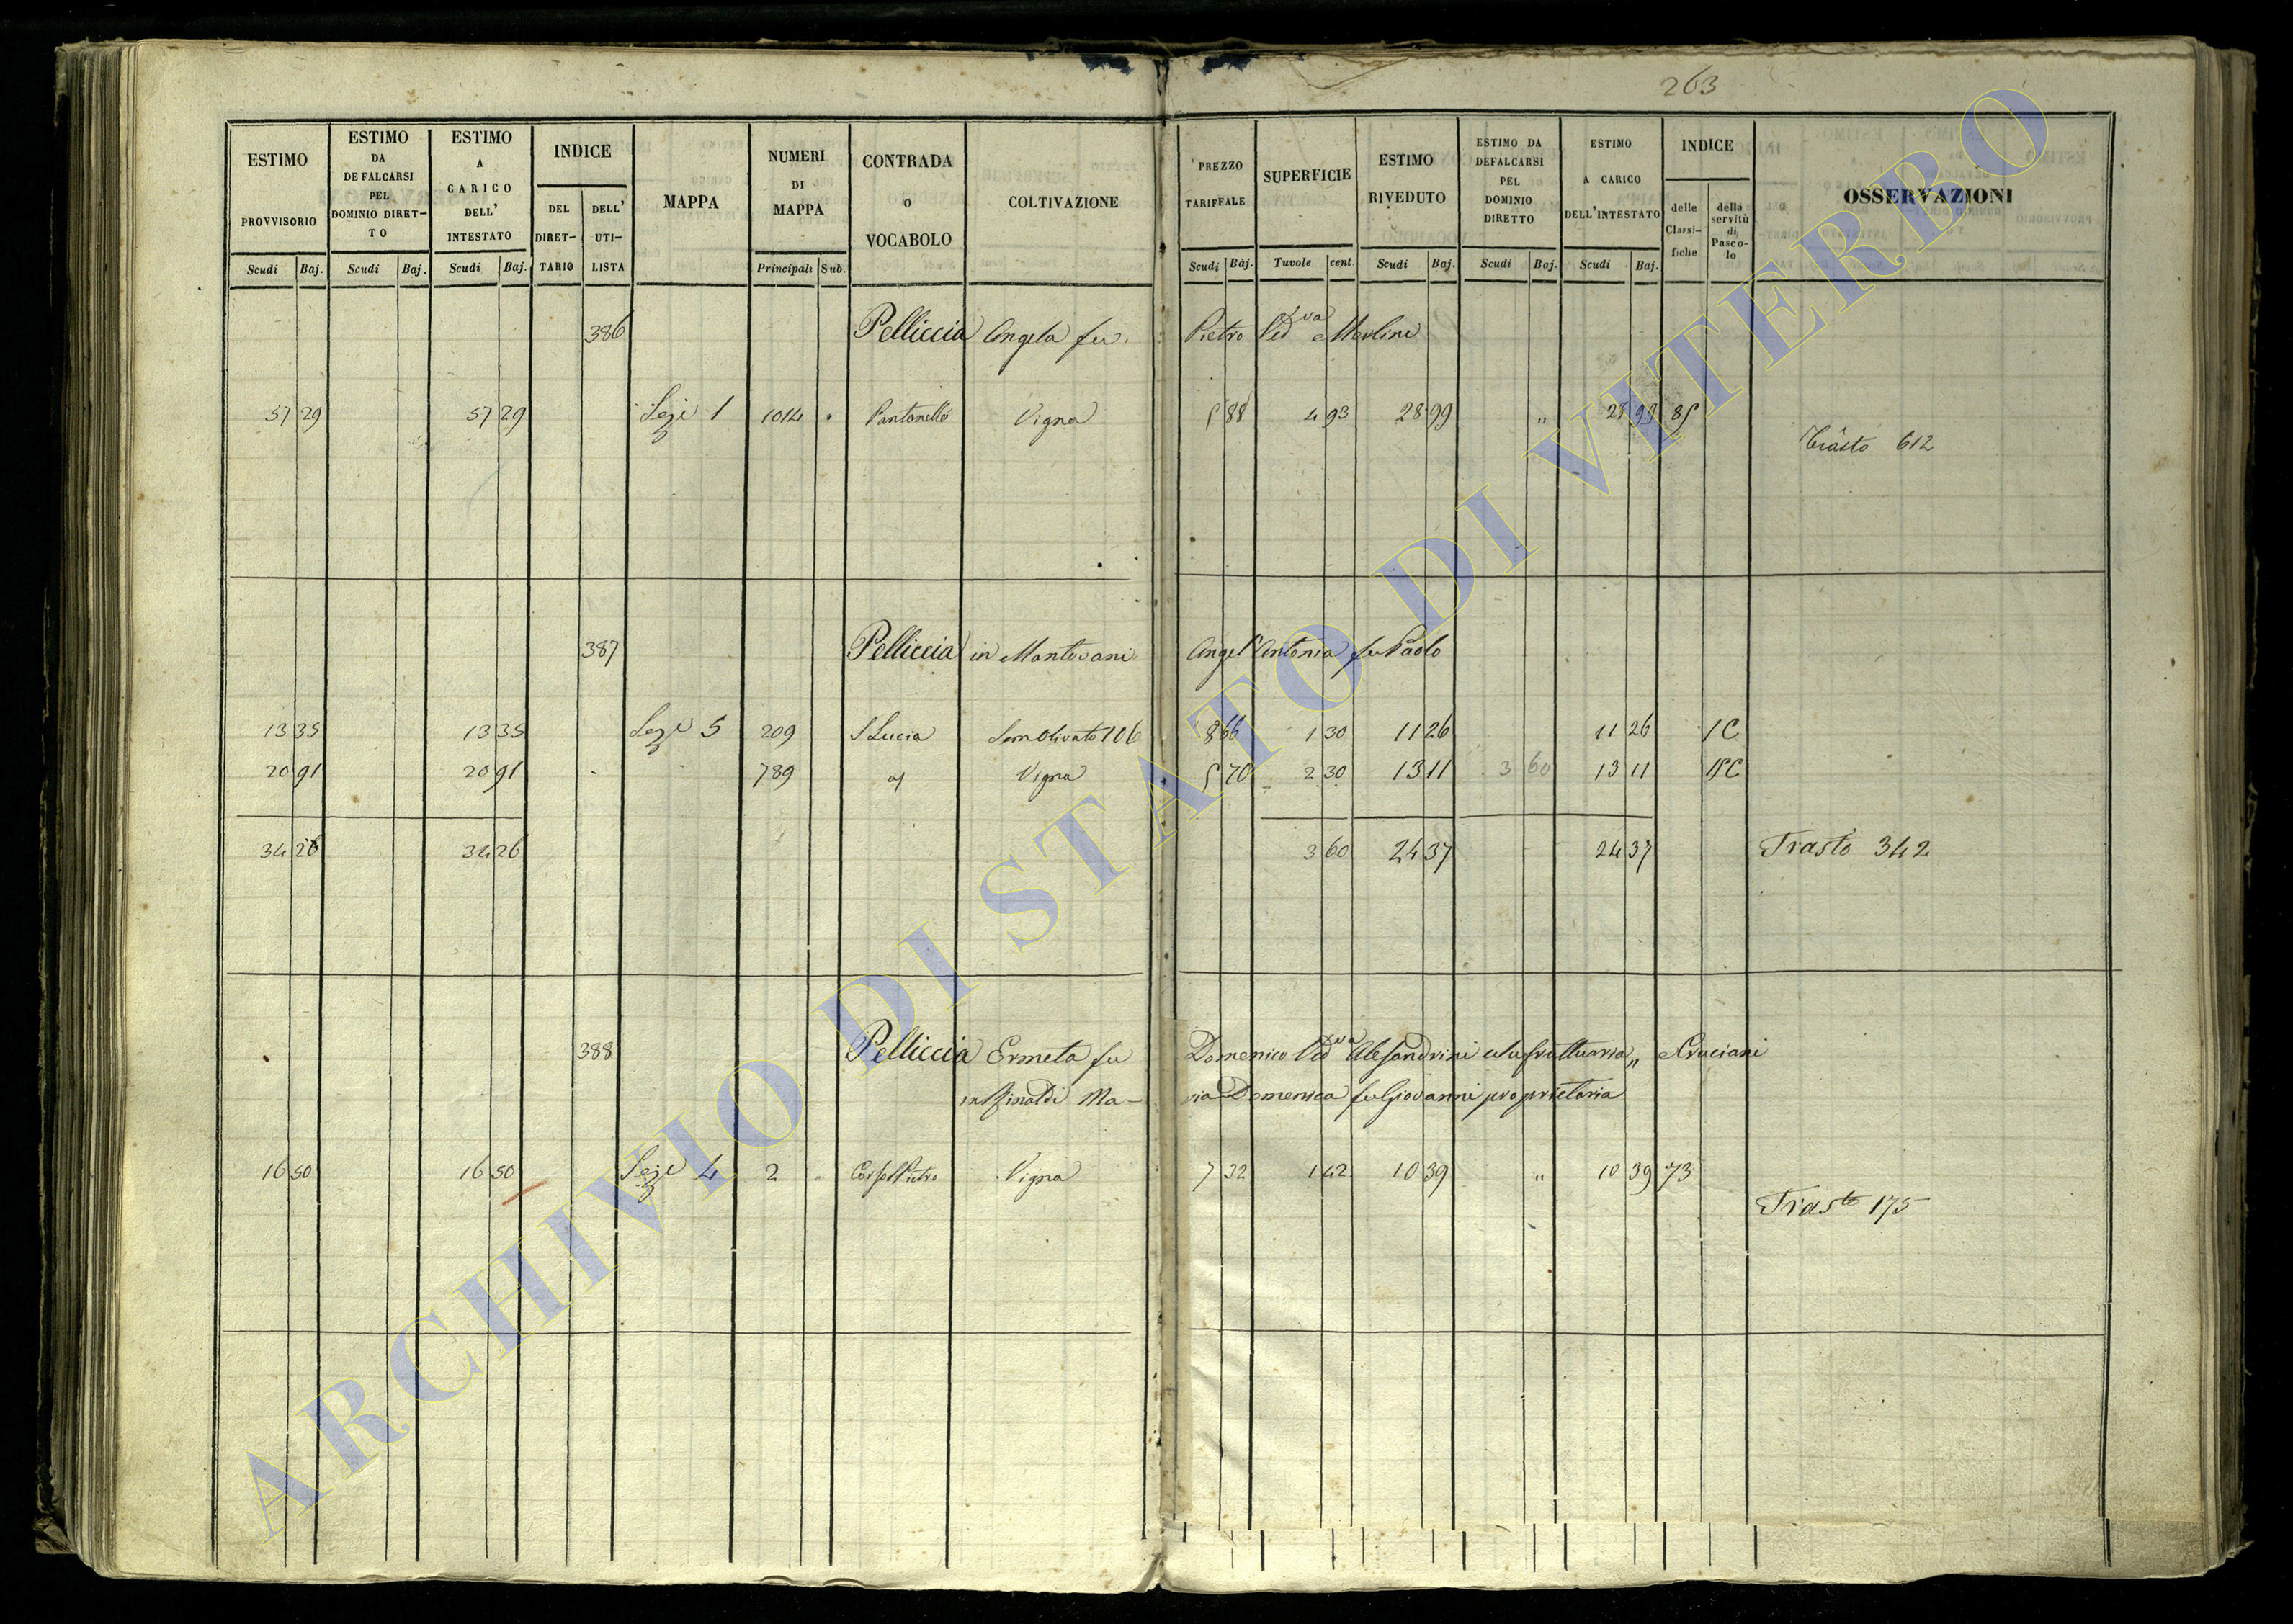 263
ESTIMO PROVVISORIO Scudi Baj.
ESTIMO DA DEFALCARSI PEL DOMINIO DIRET-TO Scudi Baj.
ESTIMO A CARICO DELL' INTESTATO Scudi Baj.
INDICE DEL DIRET-TARIO DELL' UTI-LISTA
MAPPA
NUMERI DI MAPPA Principali Sub.
CONTRADA O VOCABOLO
COLTIVAZIONE
PREZZO TARIFFALE Scudi Baj.
SUPERFICIE Tuvole cent
ESTIMO RIVEDUTO Scudi Baj.
ESTIMO DA DEFALCARSI PEL DOMINIO DIRETTO Scudi Baj.
ESTIMO A CARICO DELL'INTESTATO Scudi Baj.
INDICE delle Classi-fiche della servitù di Pasco-lo
OSSERVAZIONI
386 Pelliccia Angela fu Pietro Ved va Merlini
57 29 57 29 Sez e 1 1014 " Pantanello Vigna 5 88 4 93 28 99 " 28 99 85
Trasto 612
387 Pelliccia in Mantovani Angel'Antonia fu Paolo
13 35 13 35 Sez e 5 209 S Lucia Sem Olivato 106 8 66 1 30 11 26 11 26 1C
20 91 20 91 789 Vigna 5 70 2 30 13 11 3 60 13 11
34 26 34 26 3 60 24 37 24 37 Trasto 342
388 Pelliccia Ermeta fu Domenico Ved va Alesandrini usufruttuaria,, e Cruciani
in Rinaldi Ma- ria Domenica fu Giovanni proprietaria
16 50 16 50 Sez e 4 2 " Vigna 7 32 1 42 10 39 " 10 39 73
Trasto 175
ARCHIVIO DI STATO DI VITERBO